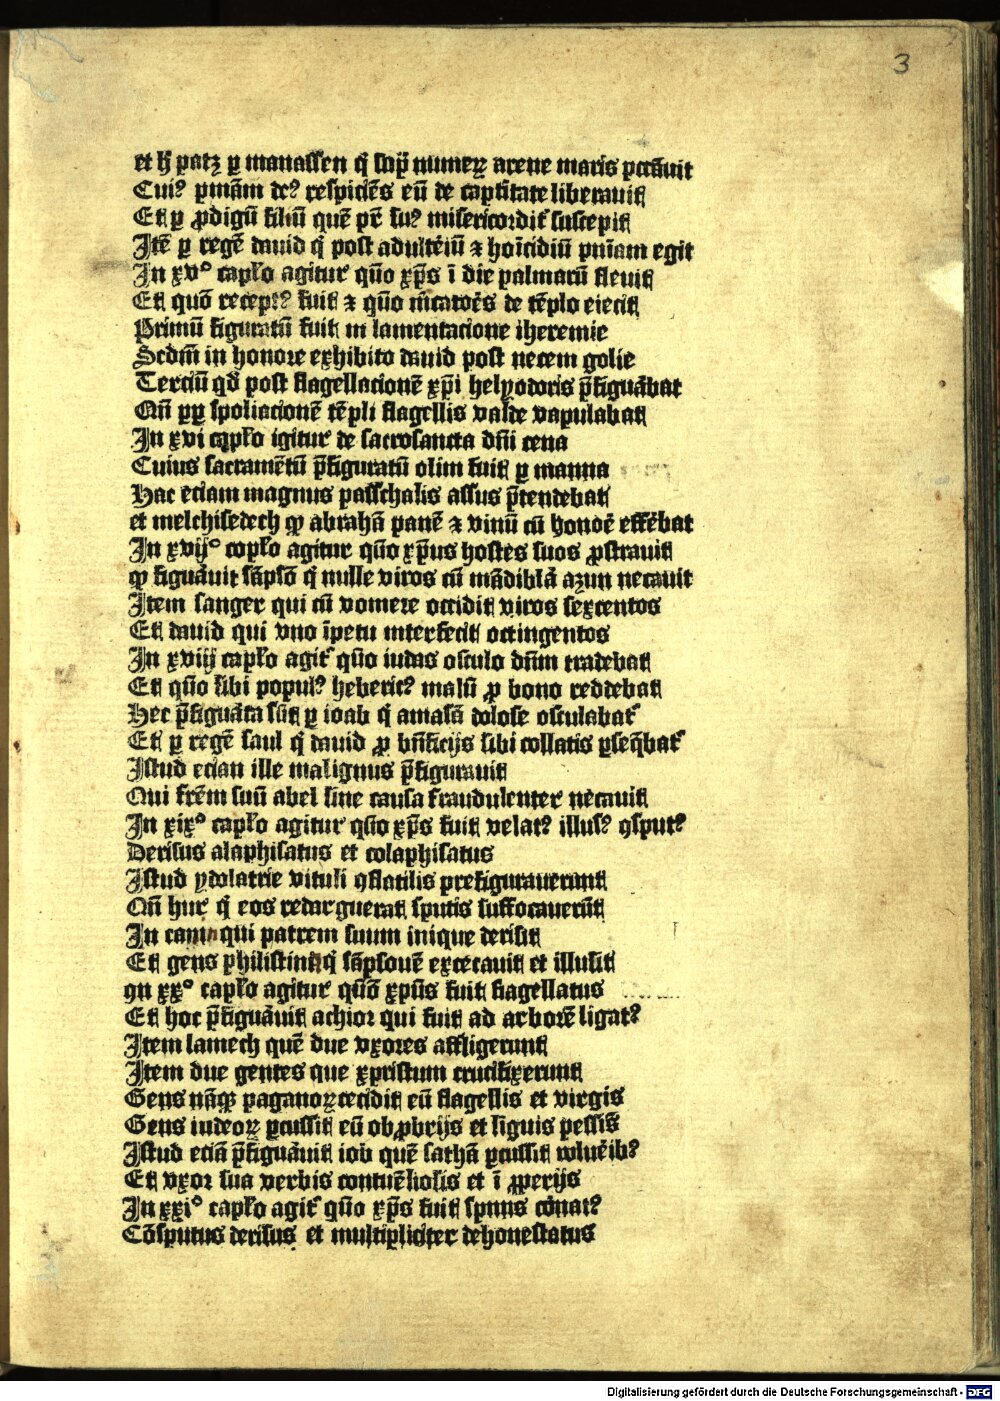 3
et h̄ patꝫ ꝑ manassen q̇ sup̄ numeꝝ arene maris pccāuit
Cuiꝰ pm̄ām deꝰ respiciēs eū de captītate liberauit
Et ꝑ ꝓdigū filiū quē pr̄ suꝰ misericordit᷑ suscepit
Itē ꝑ regē dauid q̇ post adult̄iū ⁊ hoīcidiū pnīam egit
In xv° cap̄lo agitur quō xp̄s ī die palmarū fleuit
Et quō receptꝰ fuit ⁊ quō m̄catoēs de tēplo eiecit
Primū figuratū fuit in lamentacione iheremie
Scdm̄ in honore exhibito dauid post necem golie
Terciū qd̄ post flagellacionē xp̄i helyodoris p̄figuābat
Qn̄ ꝓpꝑ spoliacionē tēpli flagellis valde vapulabat
In xvi cap̄lo igitur de sacrosancta dn̄i cena
Cuius sacramētū p̄figuratū olim fuit ꝑ manna
Hac eciam magnus passchalis assus p̄tendebat
et melchisedech qꝫ abrahā panē ⁊ vinū cū honoē effēbat
In xvij° cop̄lo agitur quō xp̄us hostes suos ꝓstrauit
qꝫ figuāuit sāpsō q̇ mille viros cū mādiblā azun necauit
Item sanger qui cū vomere occidit viros sexcentos
Et dauid qui vno īpetu interfecit octingentos
In xviij cap̄lo agit᷑ quō iudas osculo dn̄m tradebat
Et quō sibi populꝰ hebericꝰ malū ꝓ bono reddebat
Hec p̄figuāta sūt ꝑ ioab q̇ amasā dolose osculabat᷑
Et ꝑ regē saul q̇ dauid ꝓ bn̄ficijs sibi collatis ꝑseq̄bat᷑
Istud ecian ille malignus p̄figurauit
Qui fr̄em suū abel sine causa fraudulenter necauit
In xix° cap̄lo agitur quō xp̄s fuit velatꝰ illusꝰ ꝯsputꝰ
Derisus alaphisatus et colaphisatus
Istud ydolatrie vituli ꝯflatilis prefigurauerunt
Qn̄ hur q̇ eos redarguerat sputis suffocauerūt
In cam qui patrem suum inique derisit
Et gens philistini q̇ sāpsonē excecauit et illusit
ꝯn xx° cap̄lo agitur quō xpūs fuit flagellatus
Et hoc p̄figuāuit achior qui fuit ad arborē ligatꝰ
Item lamech quē due vxores affligerunt
Item due gentes que xpristum crucifixerunt
Gens nāqꝫ paganoꝝ cecidit eū flagellis et virgis
Gens iudeoꝝ ꝑcussit eū obꝓbrijs et liguis pessis̄
Istud eciā p̄figuāuit iob quē sathā ꝑcussit wlnēibꝰ
Et vxor sua verbis contuēliosis et ī ꝓperijs
In xxi° cap̄lo agit᷑ quō xp̄s fuit spinis cōnatꝰ
Cōsputus derisus et multipliciter dehonestatus
Digitalisierung gefördert durch die Deutsche Forschungsgemeinschaft - DFG